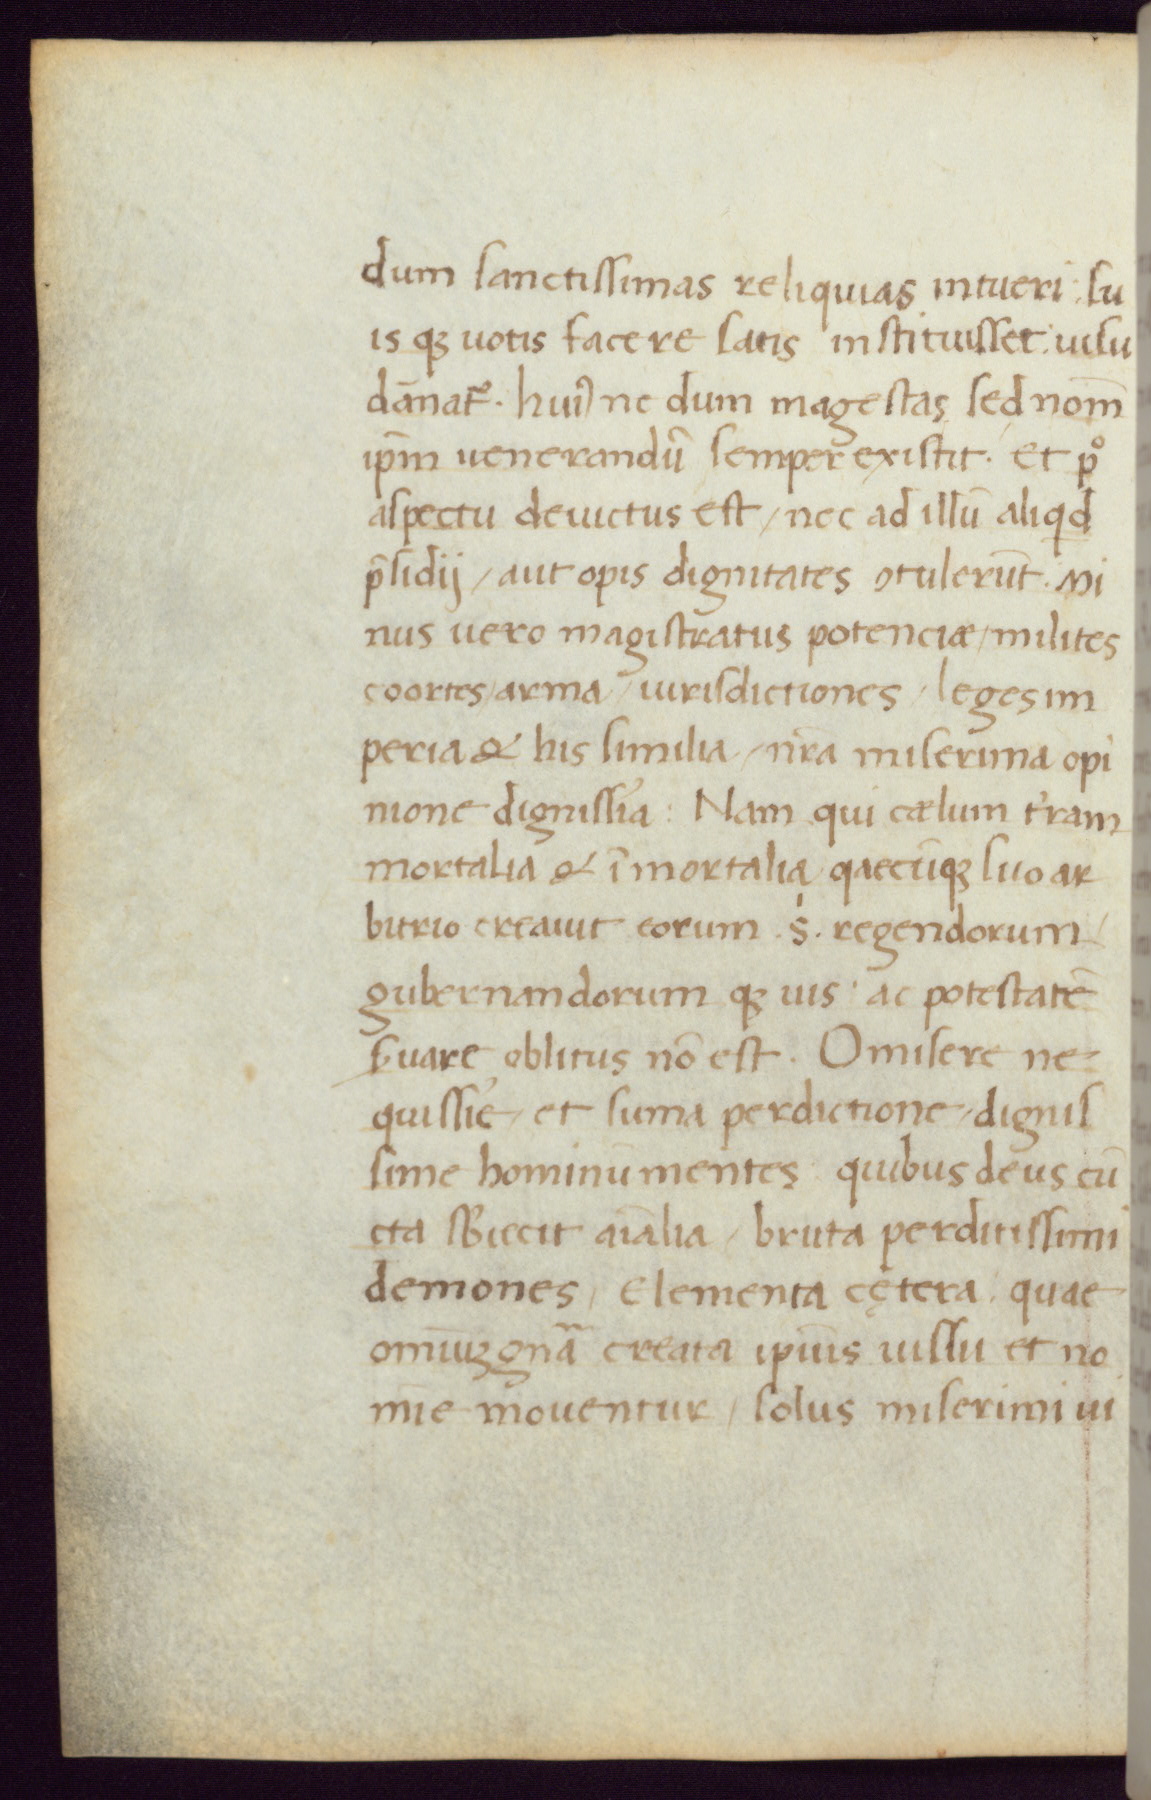 dum sanctissimas reliquias intueri su
is qꝫ uotis facere satis instituisset uisu
dānat᷑. huiꝰ ne dum magestas sed nom̄
ip̄m uenerandū semper existit. Et pͦ
aspectu deuictus est / nec ad illū aliqd
p̄sidij / aut opis dignitates ꝯtulerūt. Mi
nus uero magistratus potenciæ / milites
coortes / arma / iurisdictiones / leges im
peria & his similia / nr̄a miserima opi
nione dignissīa : Nam qui cælum t̄ram
mortalia & īmortalia qaecūqꝫ suo ar
bitrio creauit eorum .s. regendorum /
gubernandorum qꝫ uis ac potestatē
ẜuare oblitus nō est. O misere ne=
quissīe / et suma perdictione / dignis
sime hominū mentes quibus deus cū
cta sƀiecit aīalia / bruta perditissimi
demones / Elementa cętera quae
omīuꝫ gnā creata ipīus iussu et no
mīe mouentur / solus miserimi ui